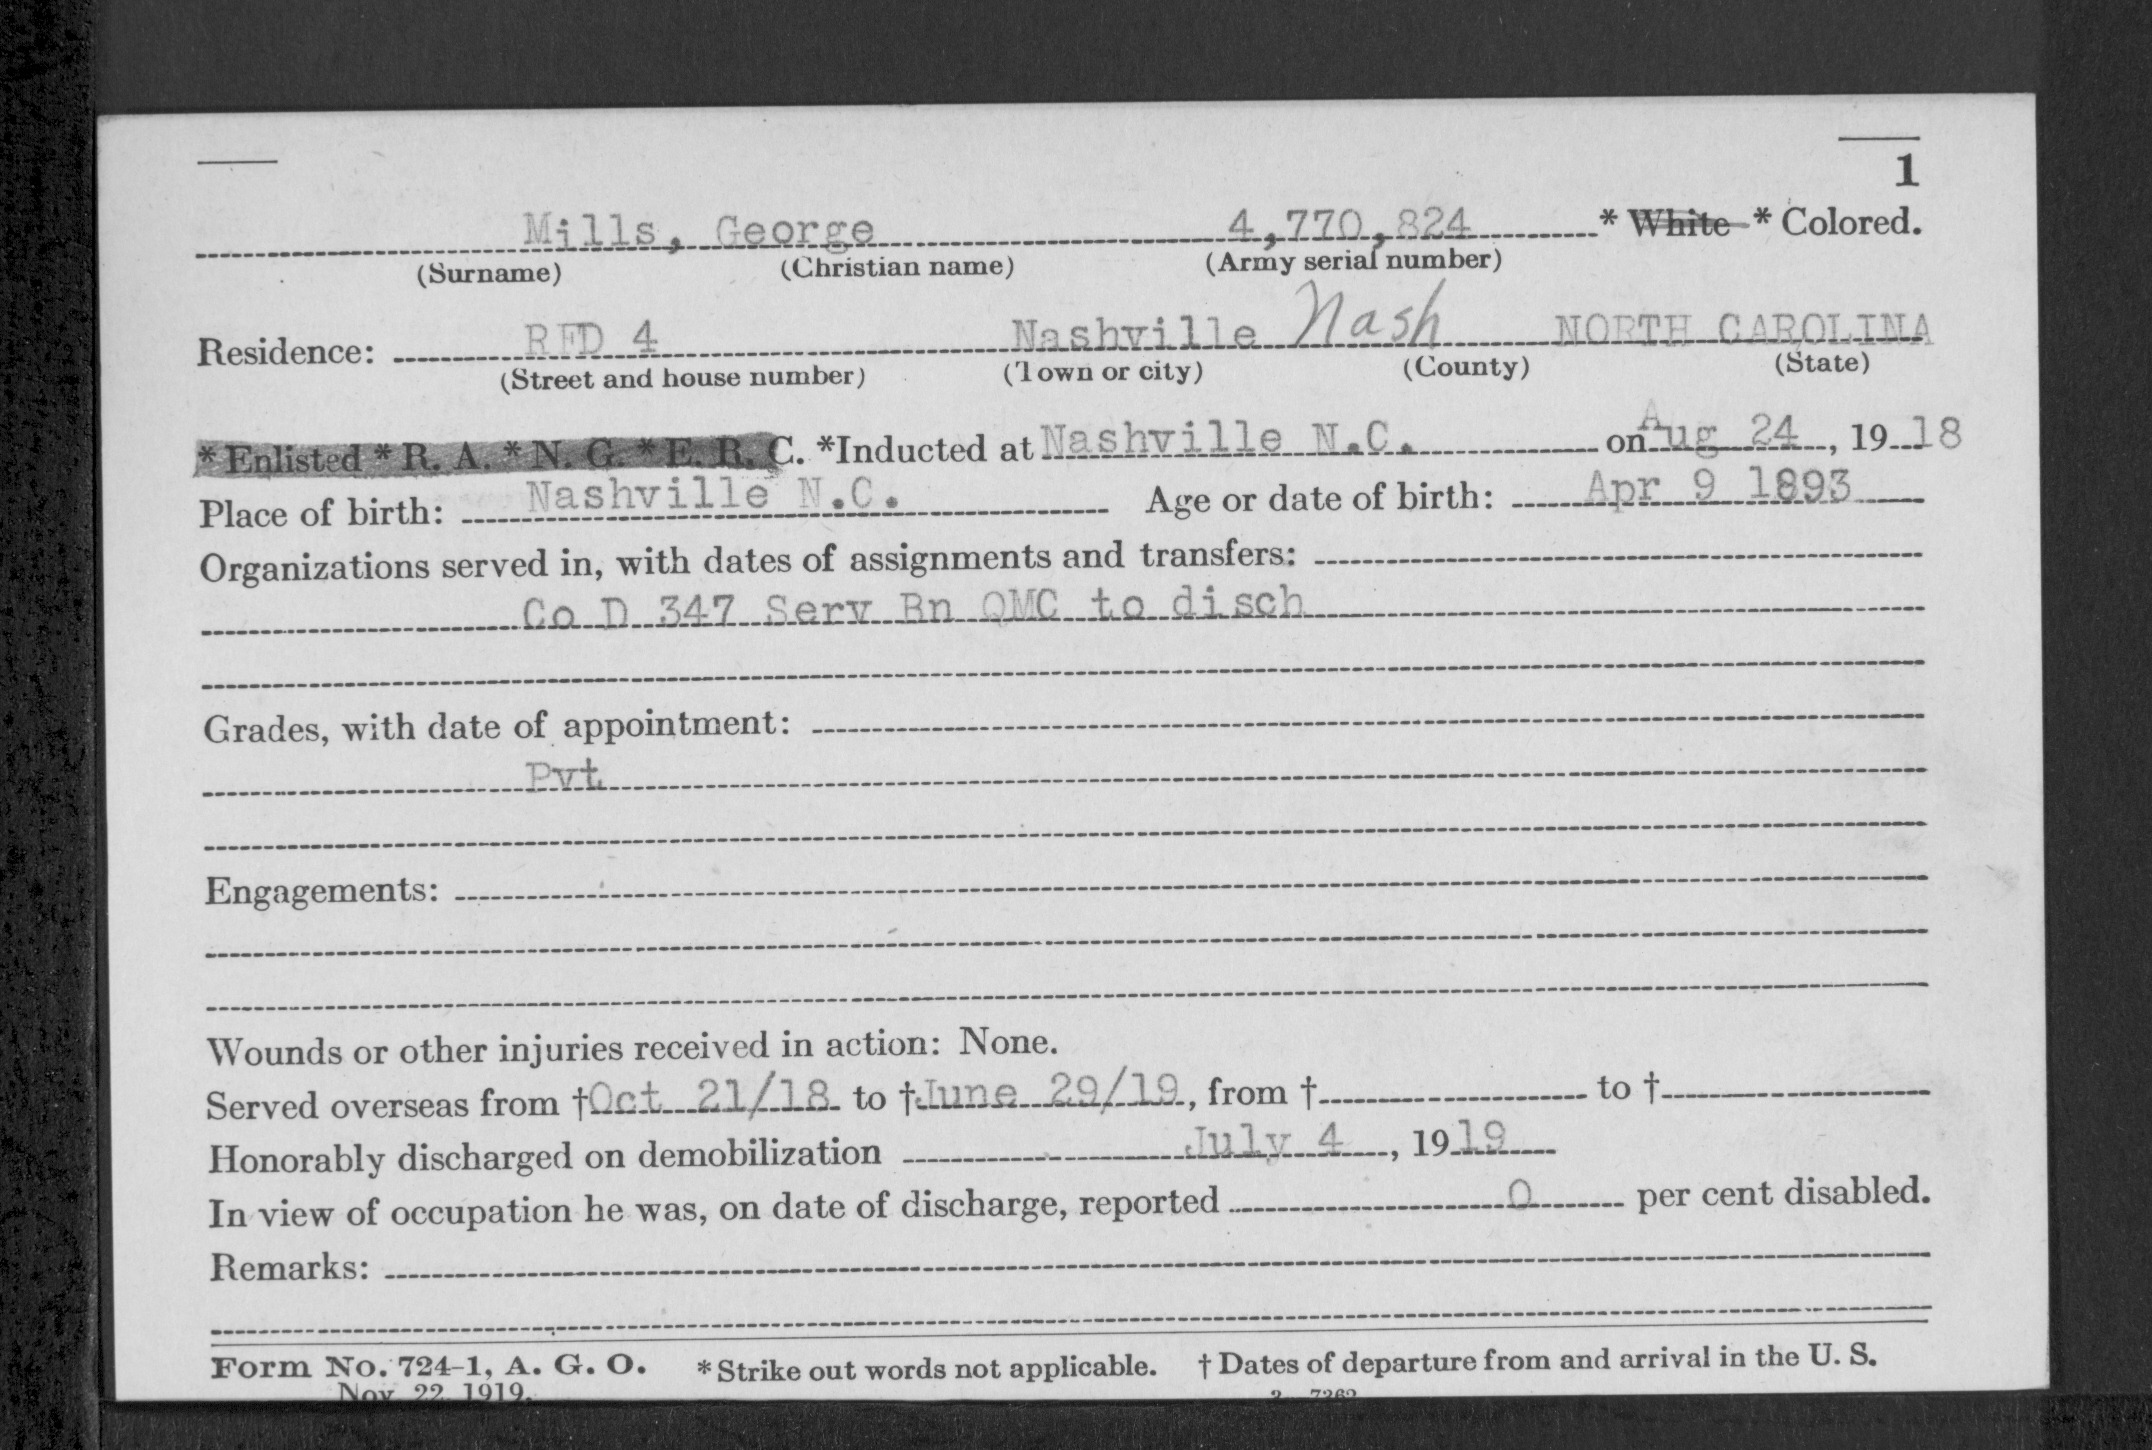 1
Mills, George 4,770,824 * White * Colored.
(Surname) (Christian name) (Army serial number)
Residence: RFD 4 Nashville Nash NORTH CAROLINA
(Street and house number) (Town or city) (County) (State)
* Enlisted * R. A. * N. G. * E. R. C. *Inducted at Nashville N.C. on Aug 24, 1918
Place of birth: Nashville N.C. Age or date of birth: Apr 9 1893
Organizations served in, with dates of assignments and transfers:
Co D 347 Serv Bn QMC to disch
Grades, with date of appointment:
Pvt
Engagements:
Wounds or other injuries received in action: None.
Served overseas from †Oct 21/18 to †June 29/19, from † to †
Honorably discharged on demobilization July 4, 1919
In view of occupation he was, on date of discharge, reported 0 per cent disabled.
Remarks:
Form No. 724-1, A. G. O. * Strike out words not applicable. † Dates of departure from and arrival in the U. S.
Nov. 22, 1919. 3—7362